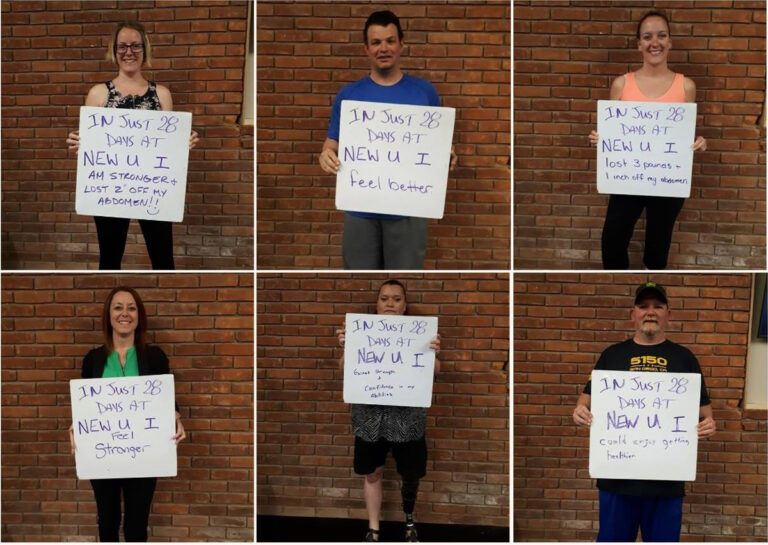 IN JUST 28
DAYS AT
NEW U I
AM STRONGER +
LOST 2" OFF MY
ABDOMEN!!
IN JUST 28
DAYS AT
NEW U I
feel better
IN JUST 28
DAYS AT
NEW U I
lost 3 pounds +
1 inch off my abdomen
IN JUST 28
DAYS AT
NEW U I
Feel
Stronger
IN JUST 28
DAYS AT
NEW U I
Gained Strength
+
Confidence in my
Abilities
5150
IN JUST 28
DAYS AT
NEW U I
could enjoy getting
healthier